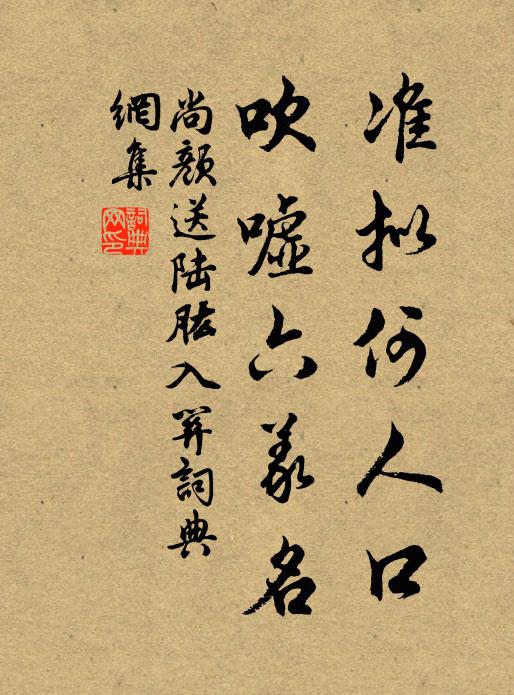 准拟何人口
吹嘘六义名
尚颜送陆肱入关詞典
網集
詞典
网印